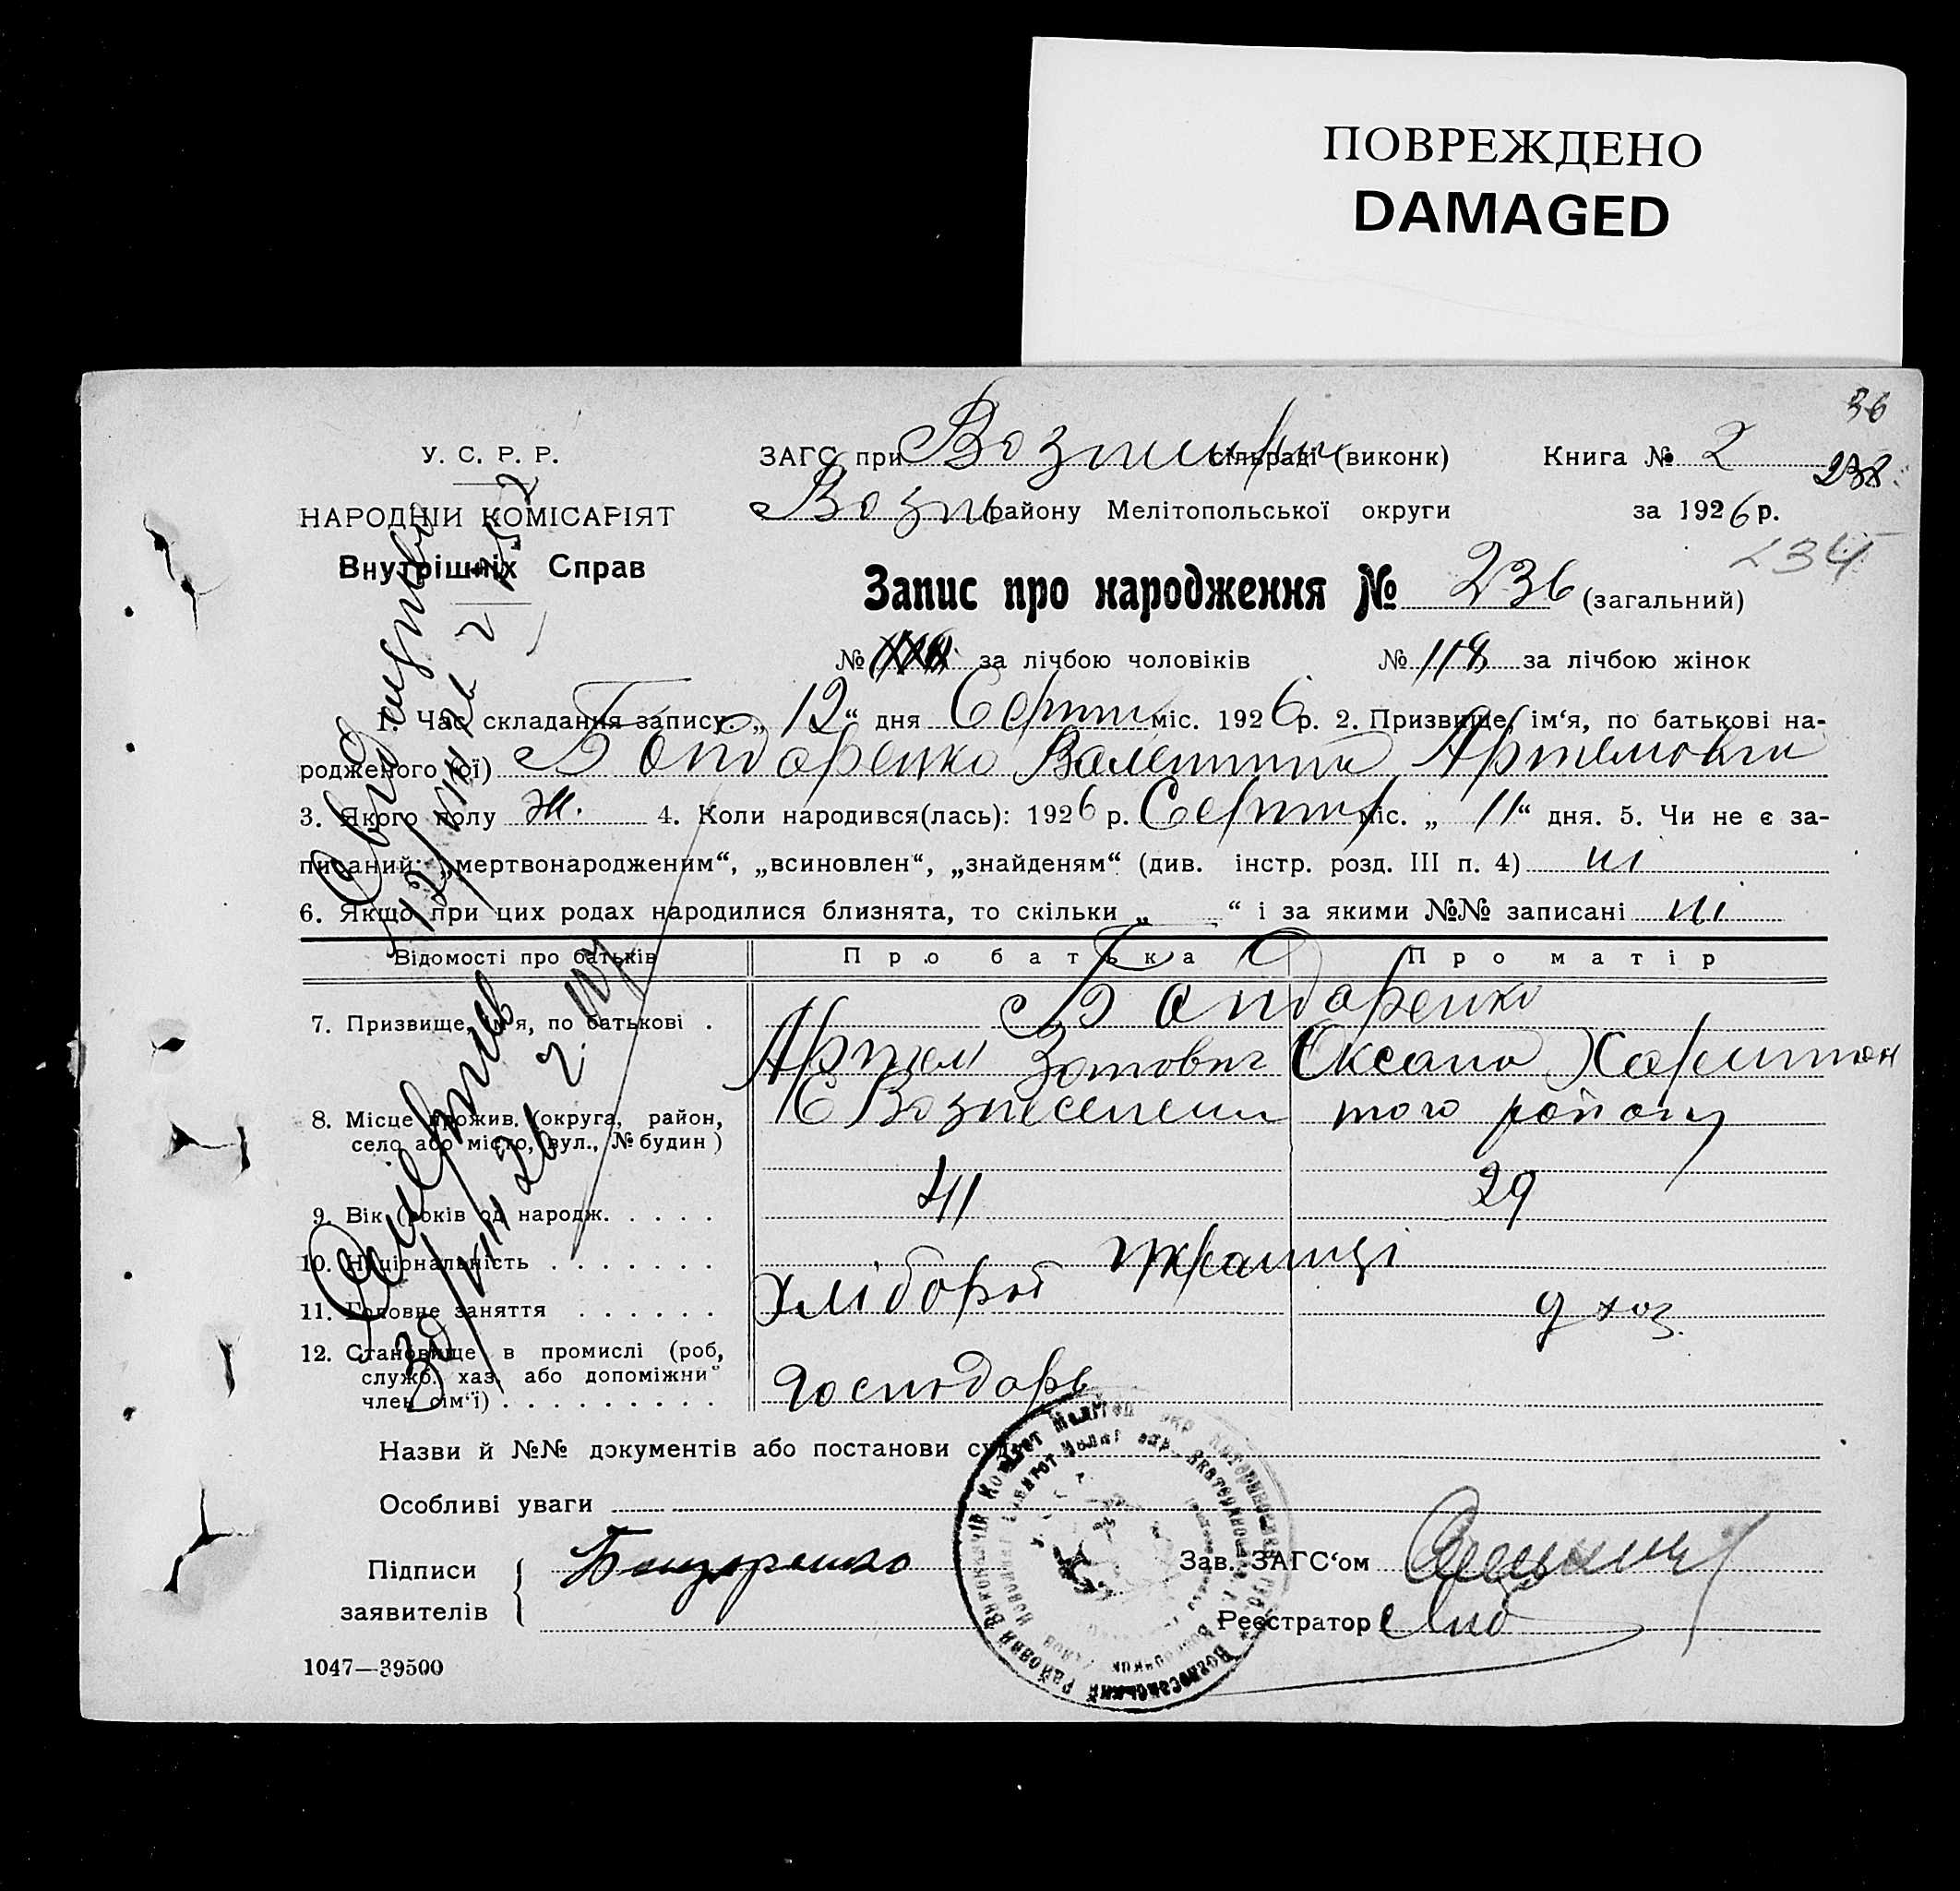 ПОВРЕЖДЕНО
DAMAGED
36
У. С. Р. Р.
НАРОДНІЙ КОМІСАРІЯТ
Внутрішніх Справ
ЗАГС при сільраді (виконк) Книга № 2
238
Возн району Мелітопольської округи за 1926 р.
234
Запис про народження № 236 (загальний)
№ за лічбою чоловіків № 118 за лічбою жінок
1. Час складання запису. „ 12 “ дня Серпня міс. 1926 р. 2. Призвище, ім‘я, по батькові на-
родженого (ої) Бондаренко Валентина Артемовна
3. Якого полу ж. 4. Коли народився(лась): 1926 р. Серпня міс. „ 11 “ дня. 5. Чи не є за-
писаний: „мертвонародженим“, „всиновлен“, „знайденям“ (див. інстр. розд. III п. 4) ні
6. Якщо при цих родах народилися близнята, то скільки „ “ і за якими №№ записані ні
Відомості про батьків Про батька Про матір
7. Призвище, ім‘я, по батькові . Бондаренко
Артем Зотович Оксана Харитон
8. Місце прожив. (округа, район, С Вознесенки того району
село або місто, вул., № будин)
9. Вік (років од народж. . . . . 41 29
10. Національність . . . . . . . українці
11. Головне заняття . . . . . . хлібороб д хоз.
12. Становище в промислі (роб,
служб. хаз. або допоміжни
член сім‘ї) . . . . . . . . . господарь
Назви й №№ документів або постанови суду
Особливі уваги
Підписи Бондаренко Зав. ЗАГС‘ом
заявителів Реєстратор
1047—39500